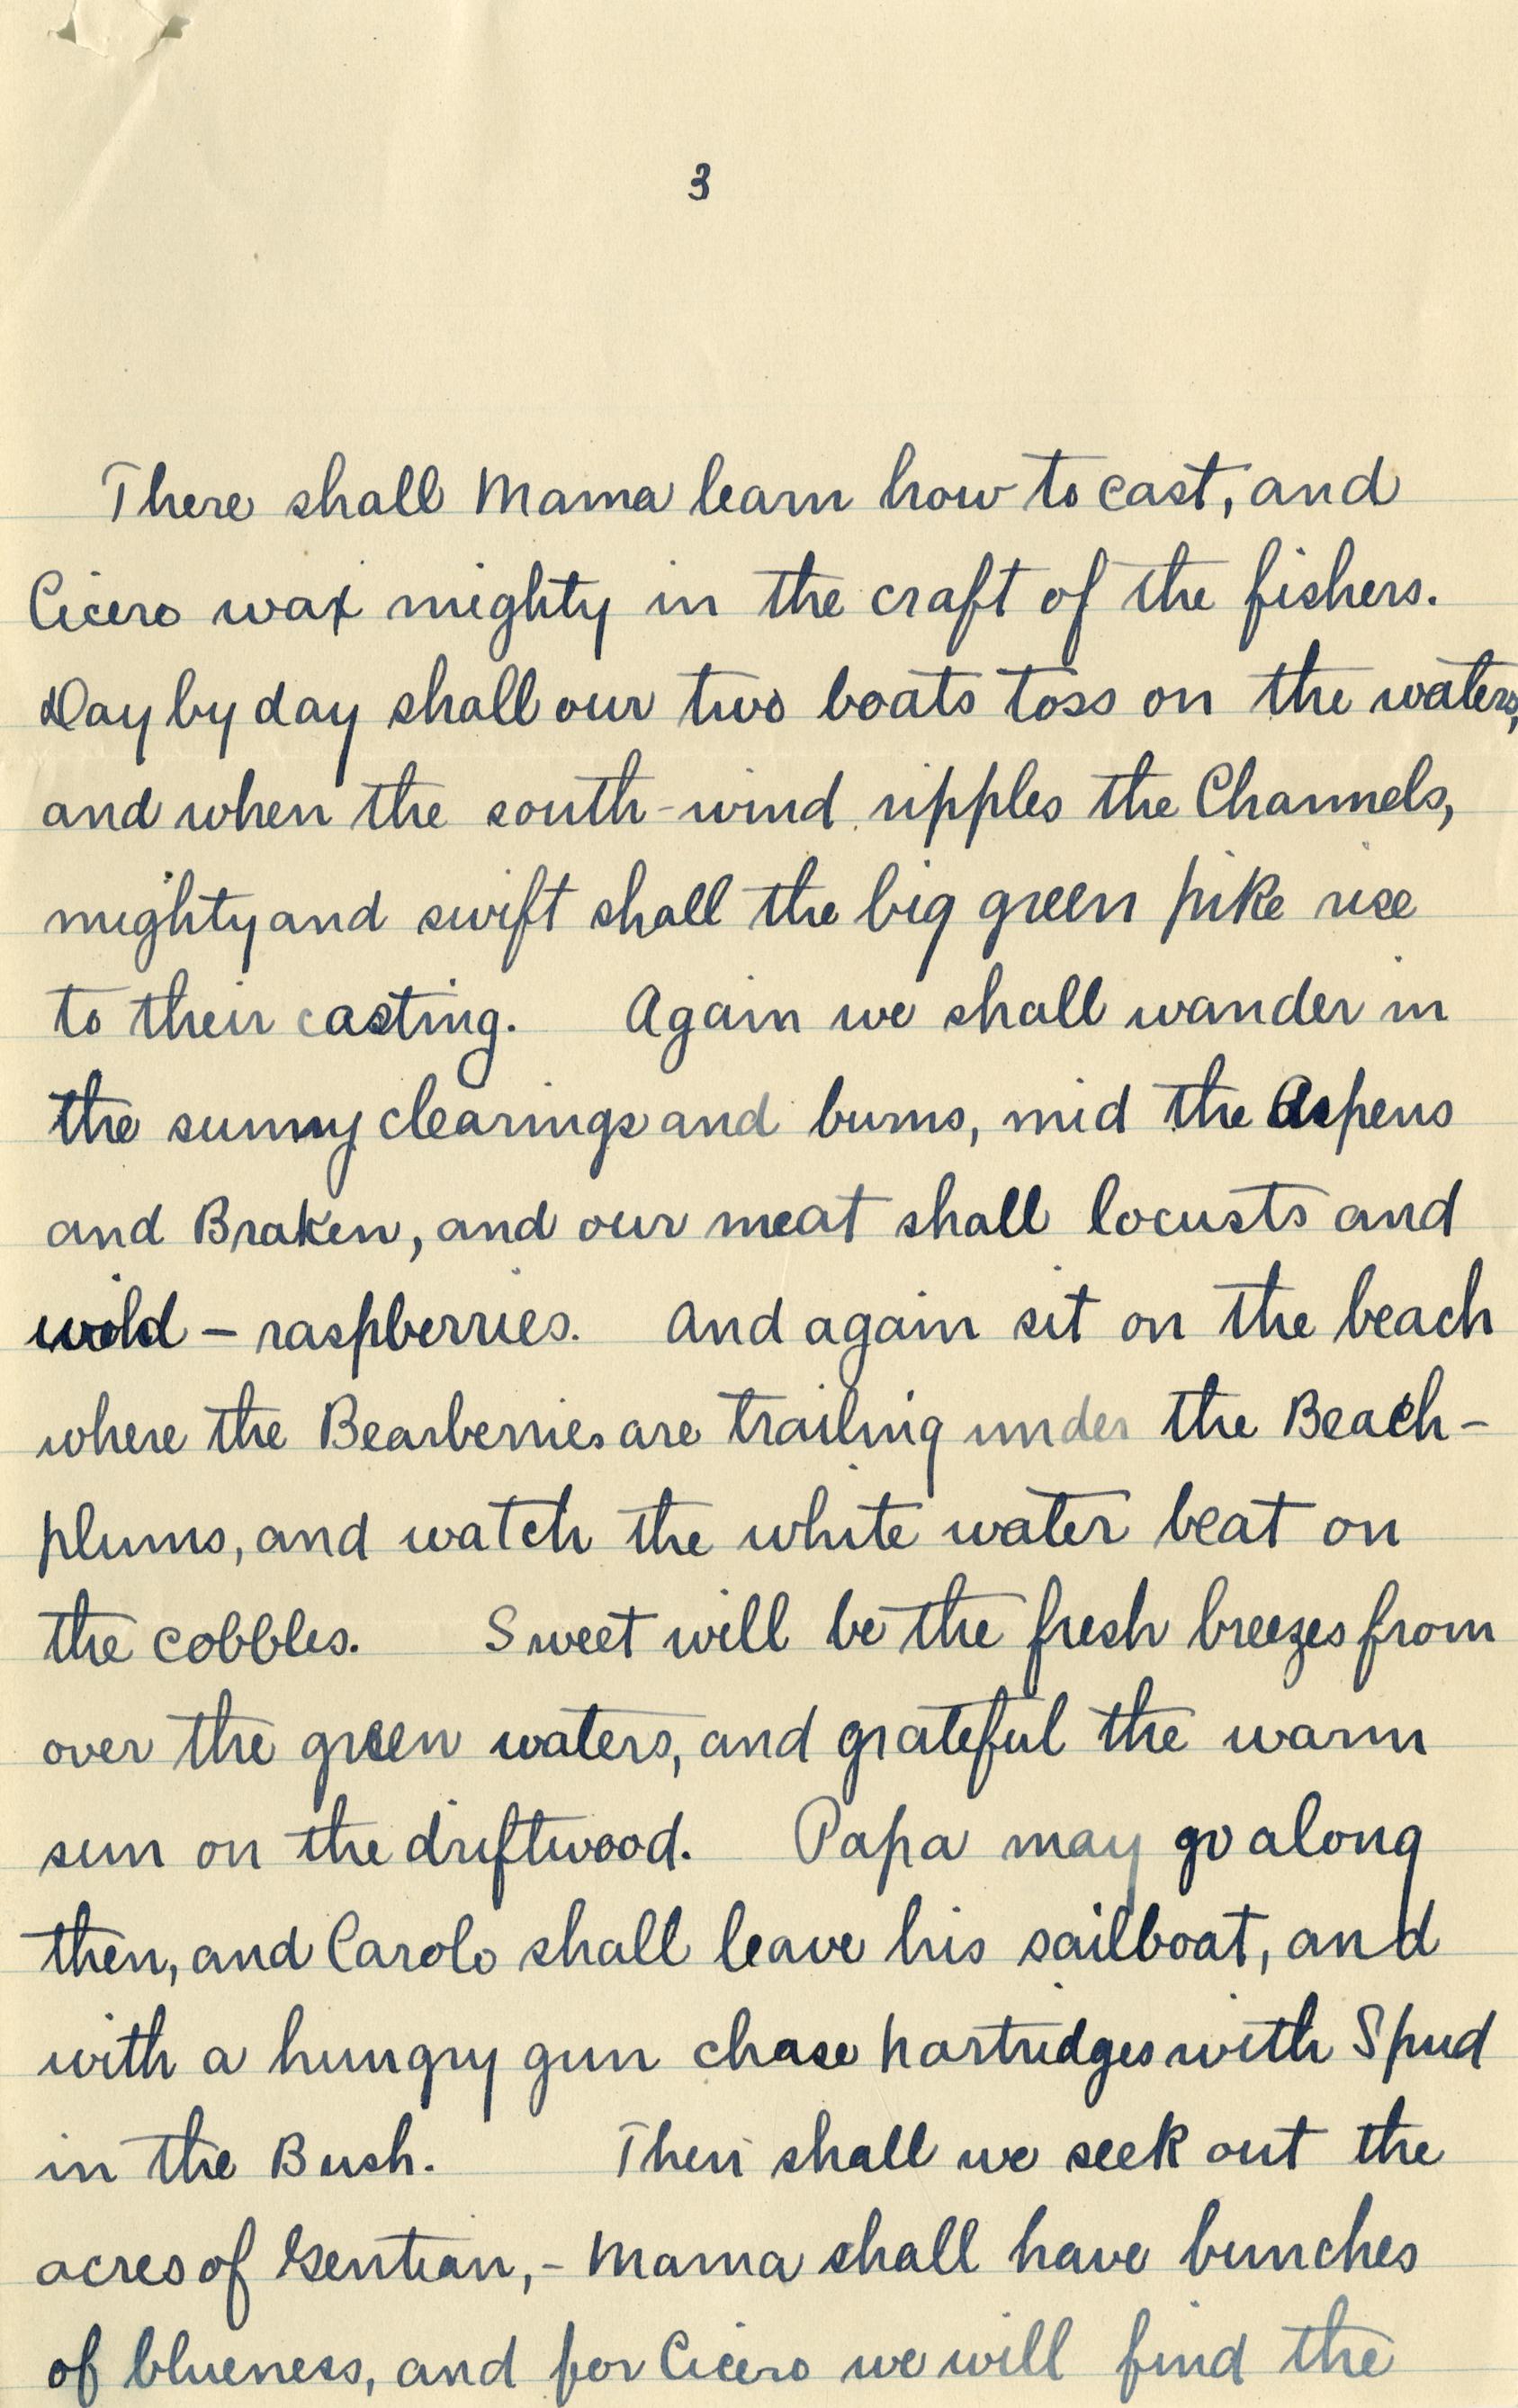 3
There shall Mama learn how to cast, and
Cicero wax mighty in the craft of the fishers.
Day by day shall our two boats toss on the waters,
and when the south-wind ripples the Channels,
mighty and swift shall the big green pike rise
to their casting. Again we shall wander in
the sunny clearings and burns, mid the Aspens
and Braken, and our meat shall locusts and
wild - raspberries. And again sit on the beach
where the Bearberries are trailing under the Beach-
plums, and watch the white water beat on
the cobbles. Sweet will be the fresh breezes from
over the green waters, and grateful the warm
sun on the driftwood. Papa may go along
then, and Carolo shall leave his sailboat, and
with a hungry gun chase partridges with Spud
in the Bush. Then shall we seek out the
acres of Gentian, - Mama shall have bunches
of blueness, and for Cicero we will find the